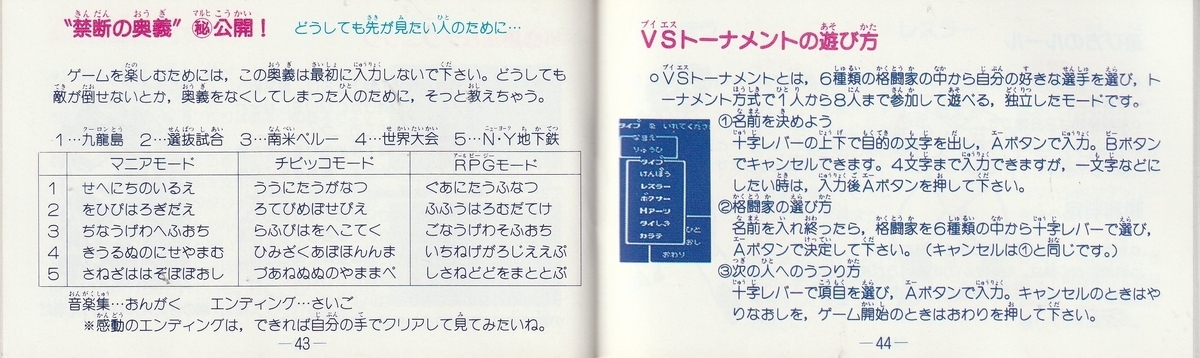 "禁断の奥義" ㊙公開! どうしても先が見たい人のために…
ゲームを楽しむためには，この奥義は最初に入力しないで下さい。どうしても
敵が倒せないとか，奥義をなくしてしまった人のために，そっと教えちゃう。
1…九龍島 2…選抜試合 3…南米ペルー 4…世界大会 5…N・Y地下鉄
マニアモード チビッコモード RPGモード
1 せへにちのいるえ ううにたうがなつ ぐあにたうふなつ
2 をひびはろぎだえ ろてびめぼせびえ ふふうはろむだてけ
3 ぢなうげわへふおち らふびはをへこてく ごなうげわそふおち
4 きうるぬのにせやまむ ひみざくあぼほんんま いちねげがろじええぶ
5 さねざははぞぼぼおし づあねぬぬのやままべ しさねどどをまととぶ
音楽集…おんがく エンディング…さいご
※感動のエンディングは，できれば自分の手でクリアして見てみたいね。
—43—
VSトーナメントの遊び方
○VSトーナメントとは，6種類の格闘家の中から自分の好きな選手を選び，ト
ーナメント方式で1人から8人まで参加して遊べる，独立したモードです。
①名前を決めよう
十字レバーの上下で目的の文字を出し，Aボタンで入力。Bボタン
でキャンセルできます。4文字まで入力できますが，一文字などに
したい時は，入力後Aボタンを押して下さい。
②格闘家の選び方
名前を入れ終ったら，格闘家を6種類の中から十字レバーで選び，
Aボタンで決定して下さい。（キャンセルは①と同じです。）
③次の人へのうつり方
十字レバーで項目を選び，Aボタンで入力。キャンセルのときはや
りなおしを，ゲーム開始のときはおわりを押して下さい。
タイプ を いれてください
なまえ
りゅうひ
タイプ
けんぽう
レスラー
ボクサー
Mアーツ
タイしき
カラテ
おわり
—44—